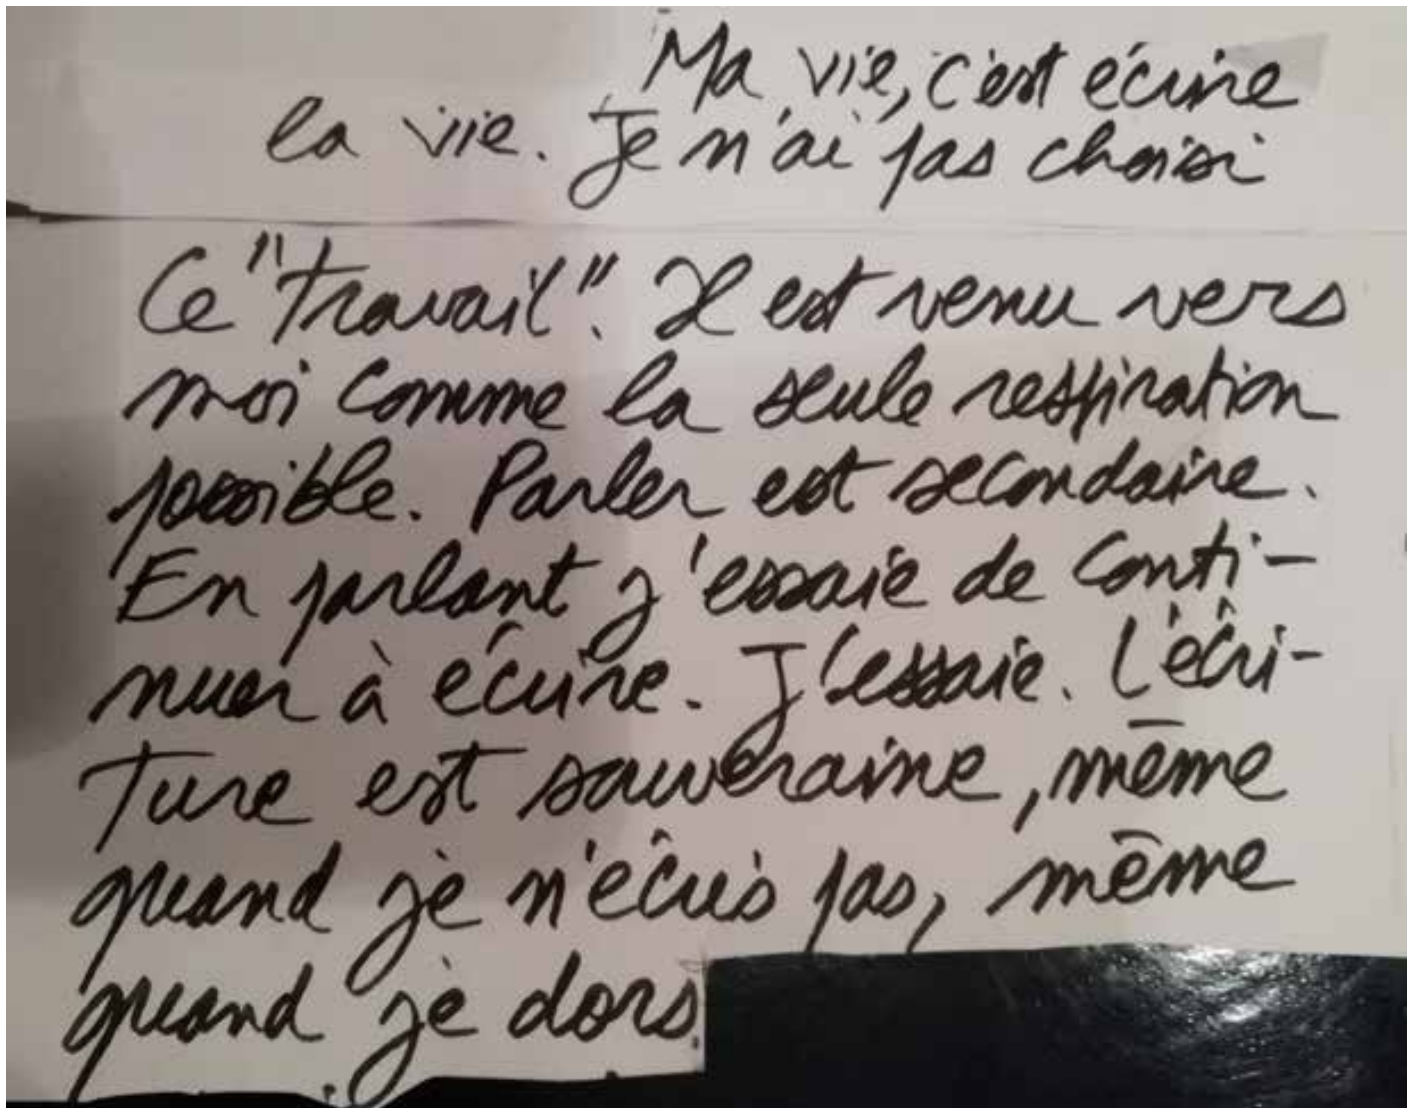 Ma vie, c'est écrire
la vie. Je n'ai pas choisi
Ce "travail". Il est venu vers
moi comme la seule respiration
possible. Parler est secondaire.
En parlant j'essaie de conti-
nuer à écrire. J'essaie. L'écri-
ture est souveraine, même
quand je n'écris pas, même
quand je dors.